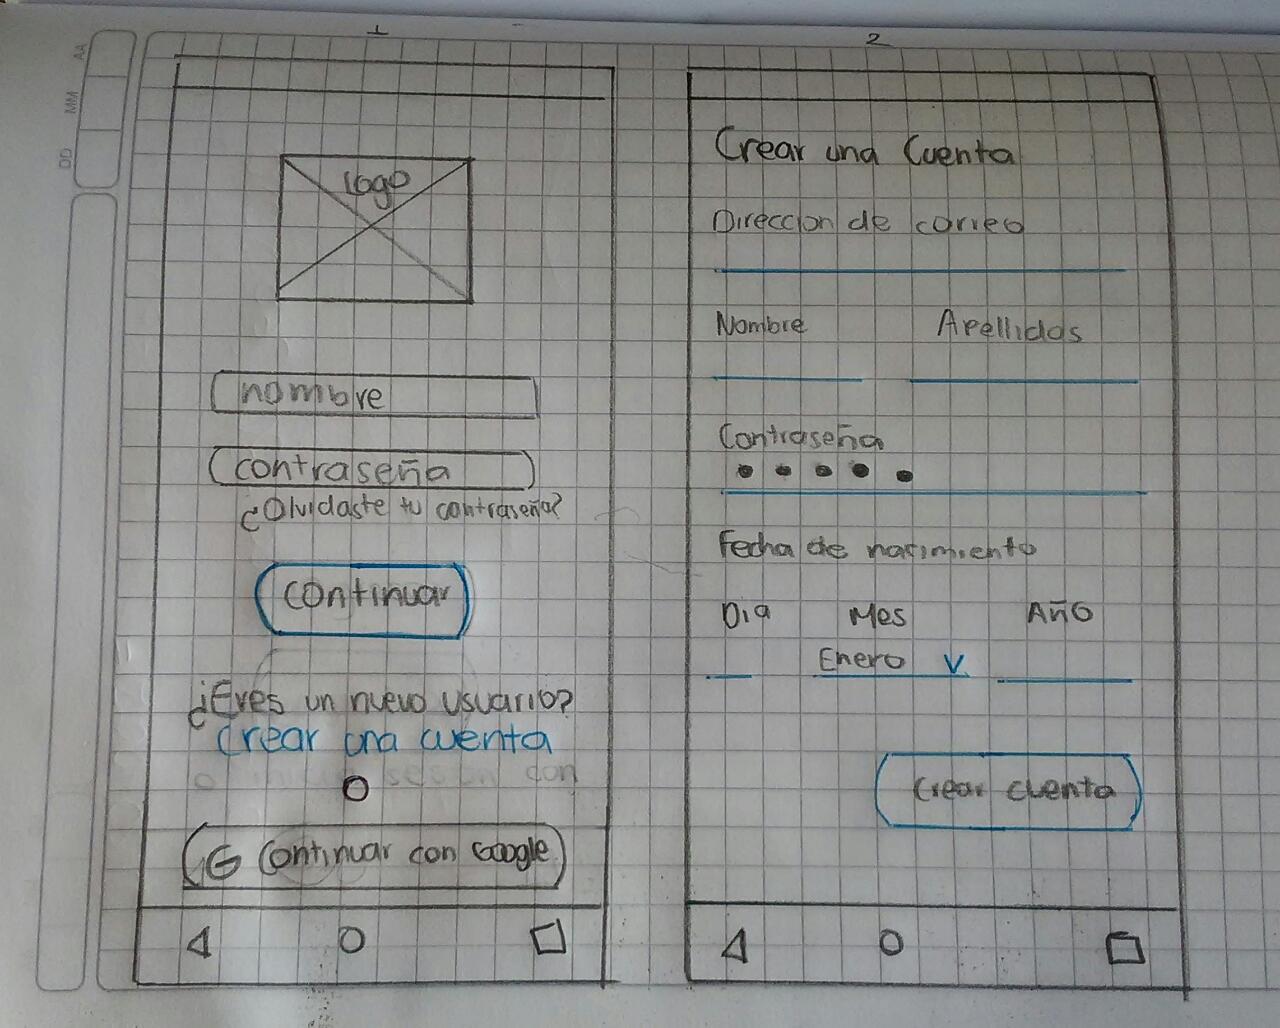 AA
MM
DD
1
logo
nombre
contraseña
¿Olvidaste tu contraseña?
continuar
¿Eres un nuevo usuario?
Crear una cuenta
o iniciar sesion con
O
G Continuar con Google
2
Crear una Cuenta
Direccion de correo
Nombre Apellidos
Contraseña
Fecha de nacimiento
Dia Mes Año
Enero v
Crear cuenta